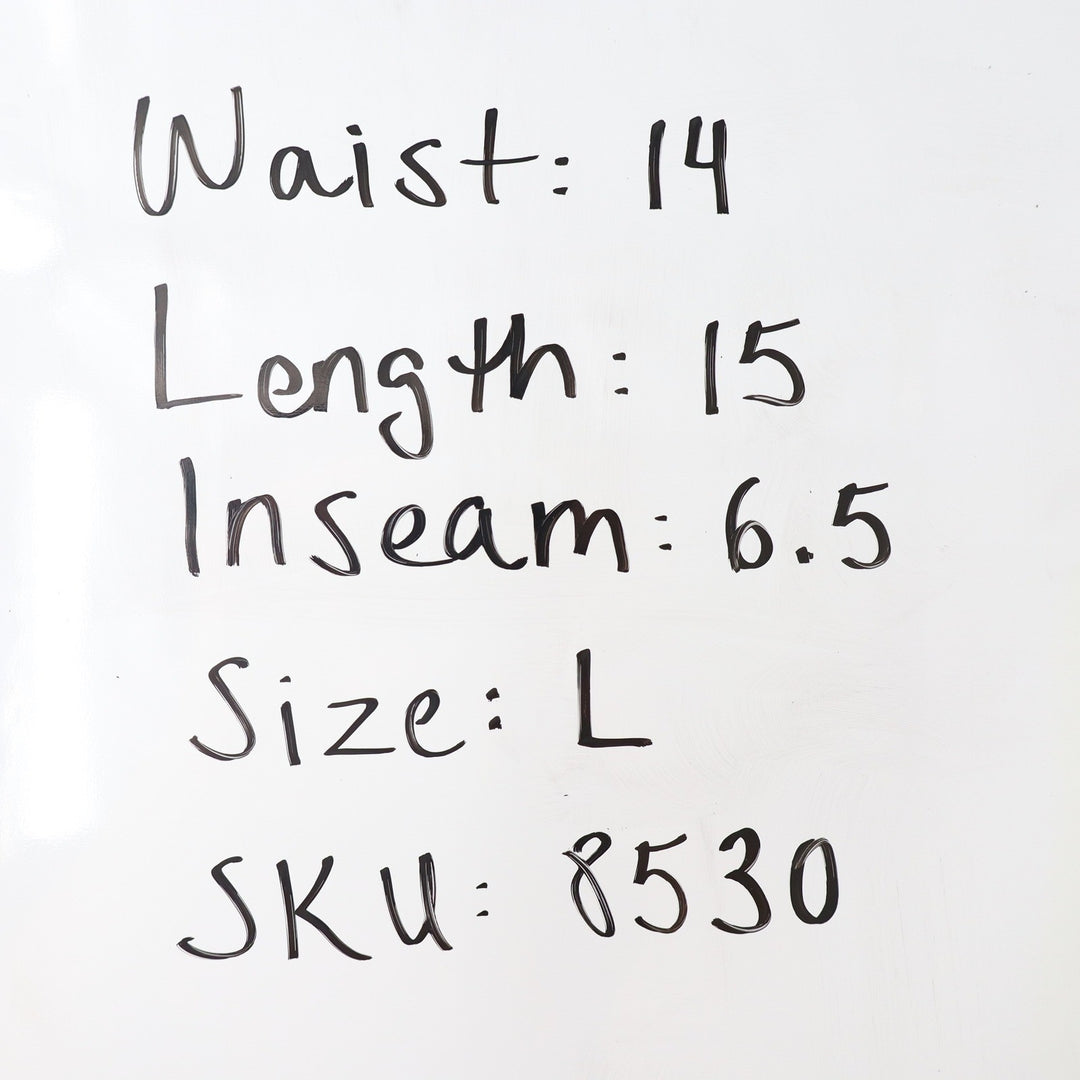 Waist: 14
Length: 15
Inseam: 6.5
Size: L
SKU: 8530